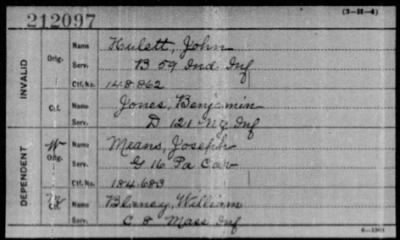 212097
(3-H-4)
INVALID
Orig.
Name Hulett, John
Serv. B 59 Ind Inf
Ctf. No. 148862
C.f. Name Jones, Benjamin
Serv. D 121 Ny Inf
DEPENDENT
W Orig. Name Means, Joseph
Serv. G 16 Pa Cav
Ctf. No. 184683
Name Blaney, William
Serv. C 8 Mass Inf